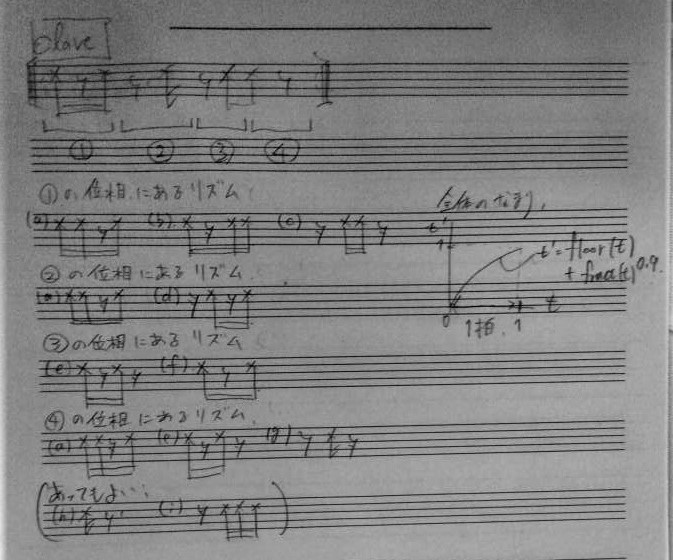 clave
① ② ③ ④
①の位相にあるリズム
全体のなまり,
(a) (b) (c)
t'
1
t'=floor(t)
+ fract(t)^0.9.
②の位相にあるリズム
(a) (d)
0 1拍. 1 t
③の位相にあるリズム
(e) (f)
④の位相にあるリズム
(a) (e) (g)
(あってもよい:
(h) (i) )